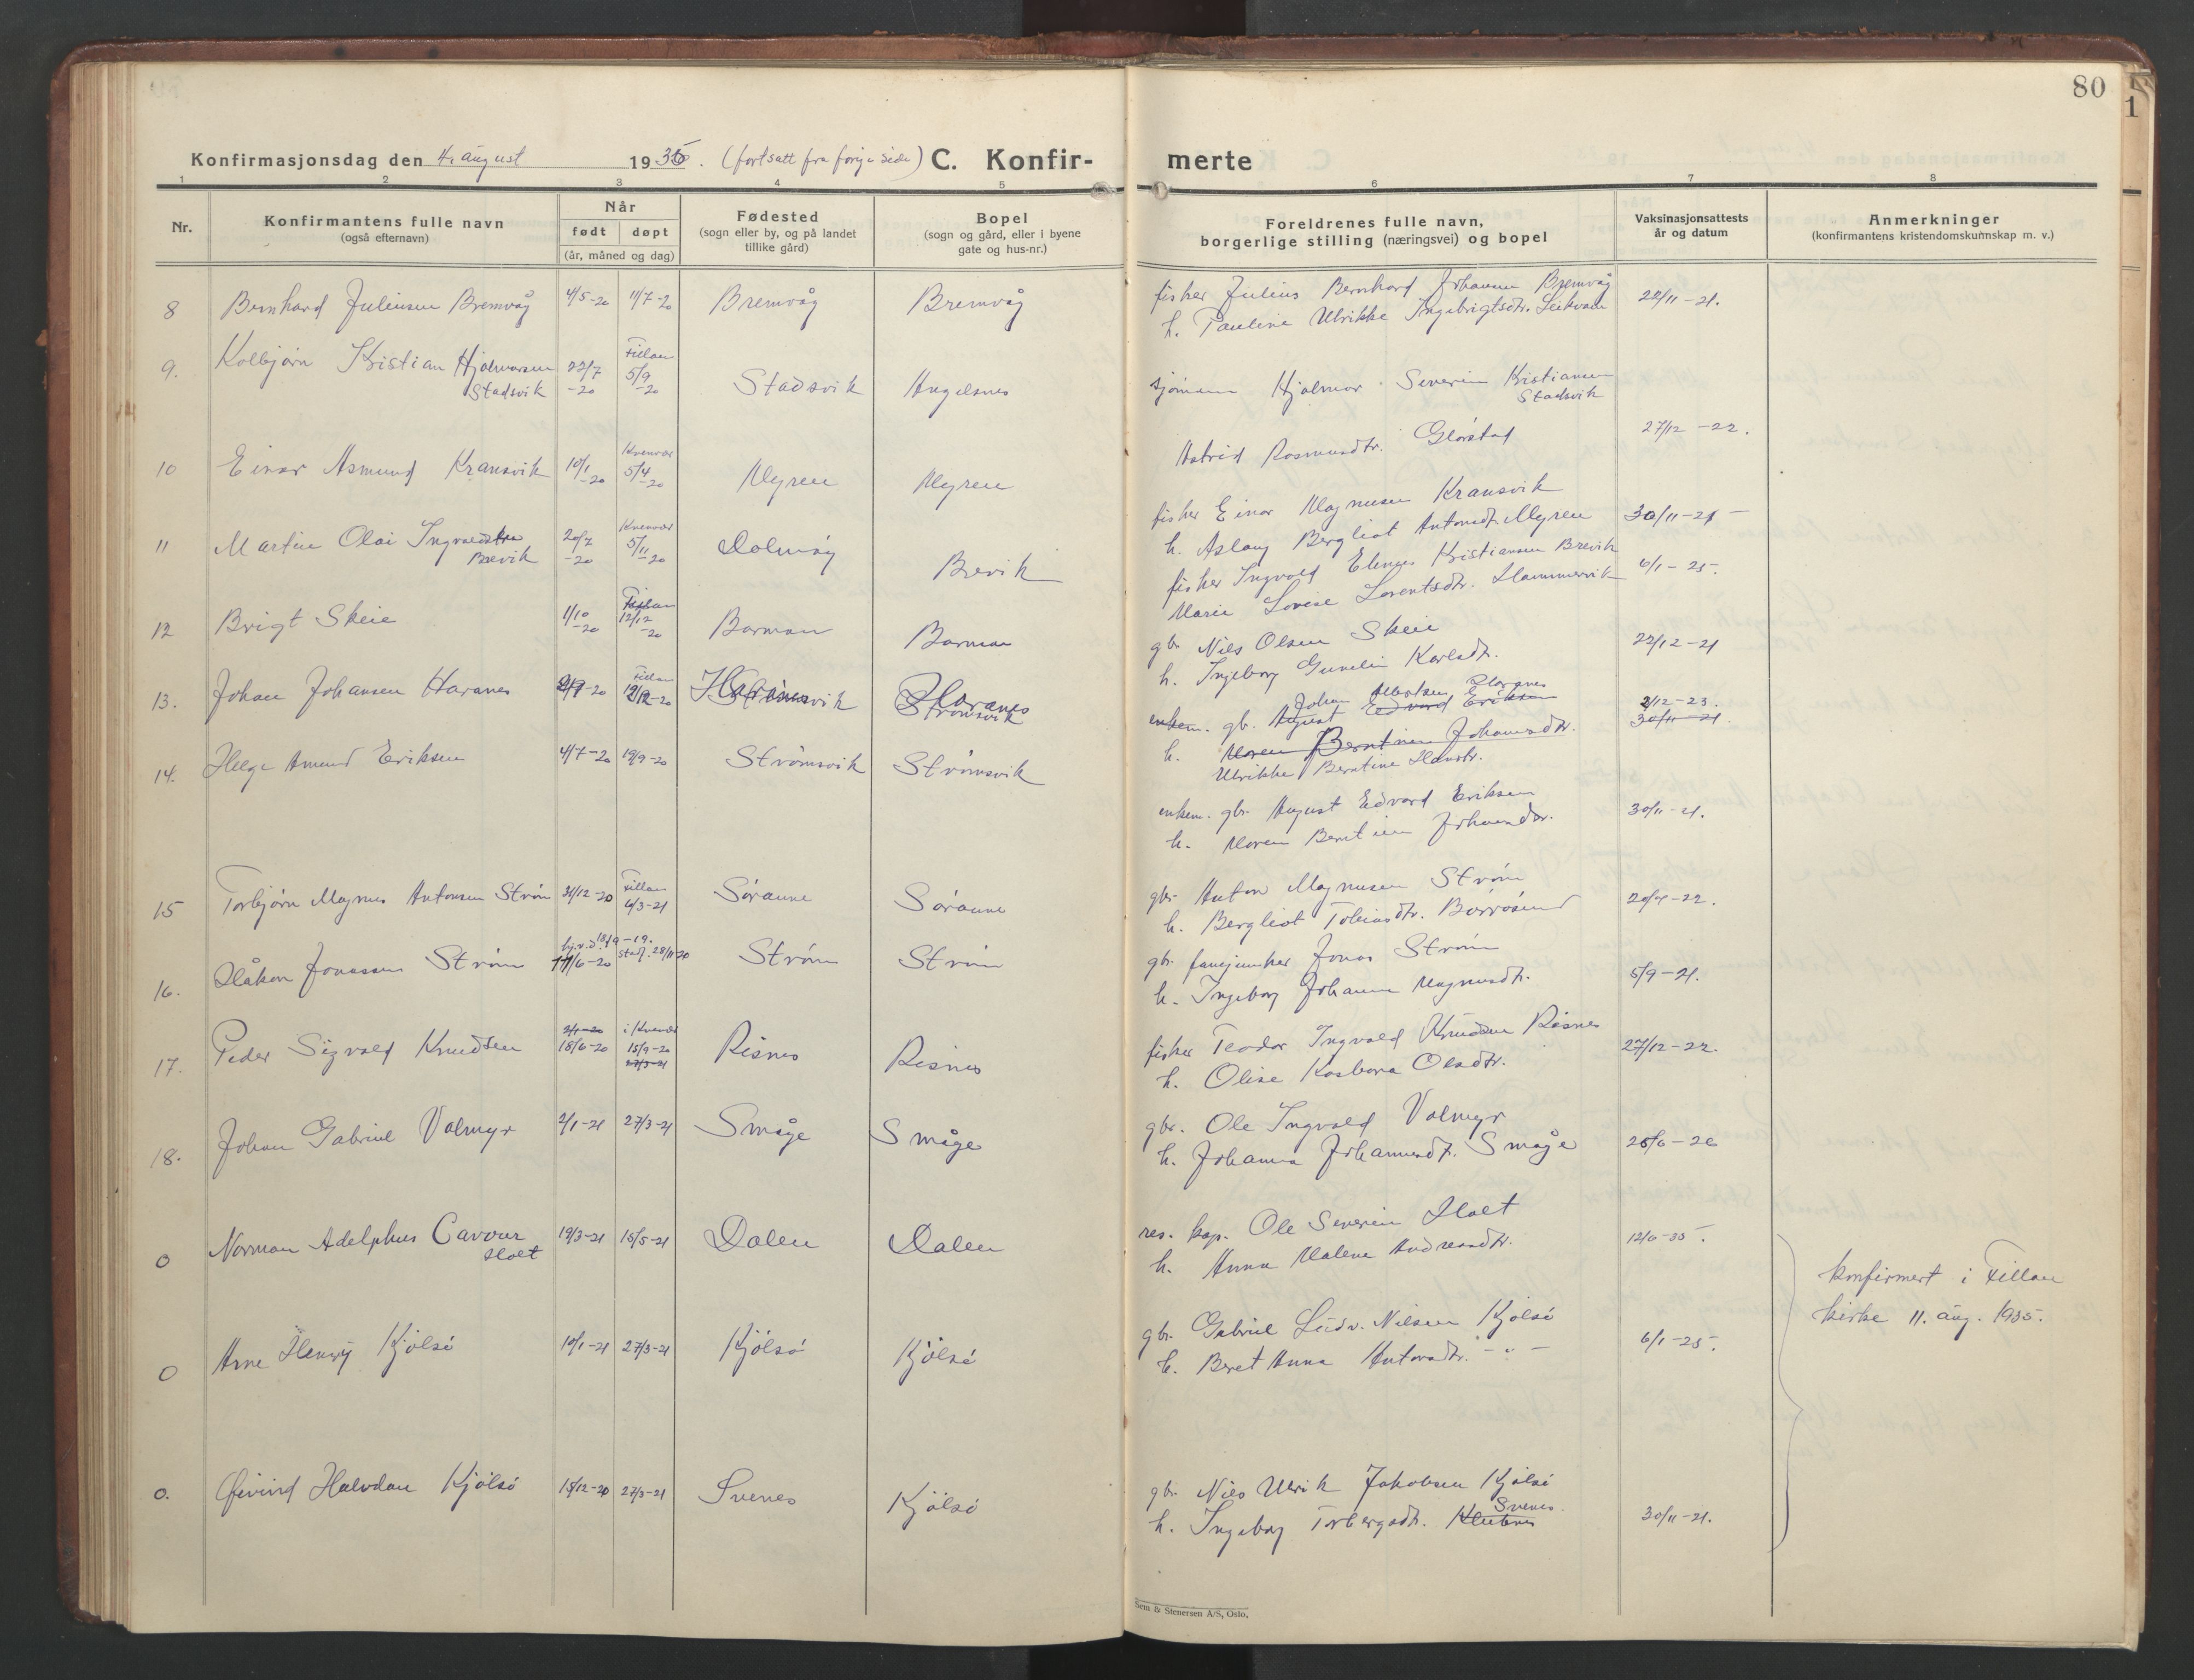 80
1
Konfirmasjonsdag den 4. august 1935. (fortsatt fra forige side) C. Konfir- merte
1 2 3 4 5 6 7 8
Nr.
Konfirmantens fulle navn
(også efternavn)
Når
født døpt
(år, måned og dag)
Fødested
(sogn eller by, og på landet
tillike gård)
Bopel
(sogn og gård, eller i byene
gate og hus-nr.)
Foreldrenes fulle navn,
borgerlige stilling (næringsvei) og bopel
Vaksinasjonsattests
år og datum
Anmerkninger
(konfirmantens kristendomskunnskap m. v.)
8 Bernhard Juliussen Bremvåg 4/5-20 11/7-20 Bremvåg Bremvåg
fisker Julius Bernhard Johansen Bremvåg
h. Pauline Ulrikke Ingebrigtsdtr. Leikvam 22/11-21.
9. Kolbjørn Kristian Hjalmarsen Stadsvik 22/7-20 Fillan 5/9-20 Stadsvik Angelsnes
sjømann Hjalmar Severin Kristiansen Stadsvik
Astrid Rasmusdtr. Glørstad 27/12-22.
10 Einar Asmund Kransvik 10/1-20 Kvenvær 5/4-20 Myren Myren
fisker Einar Magnusen Kransvik
h. Aslaug Bergliot Antonsdtr. Myren 30/11-21
11 Martin Olai Ingvaldsen Brevik 20/7-20 Kvenvær 5/11-20 Dolmøy Brevik
fisker Ingvald Elenius Kristiansen Brevik
Marie Lovise Lorentsdtr. Hammervik 6/1-25.
12 Brigt Skeie 1/10-20 Fillan 12/12-20 Barman Barman
gbr. Nils Olsen Skeie
h. Ingeborg Gunelie Karlsdtr. 22/12-21
13. Johan Johansen Haranes -20 Fillan -20 Haranes Haranes Strømsvik
enkem. gbr. Johan Albertsen Haranes
August Edvard Eriksen
h. Maren Berntine Johansdtr.
Ulrikke Berntine Hansdtr. 2/12-23.
30/11-21.
14. Helge Amund Eriksen 4/7-20 19/9-20 Strømsvik Strømsvik
enkem. gbr. August Edvard Eriksen
h. Maren Berntine Johansdtr. 30/11-21.
15 Torbjørn Magnus Antonsen Strøm 31/12-20 Fillan 6/3-21 Søraune Søraune
gbr. Anton Magnusen Strøm
h. Bergliot Tobiasdtr. Børrøsund 20/4-22.
16. Håkon Jonassen Strøm 17/6-20 hj.v.d. 18/9-19. stadf. 28/11-20 Strøm Strøm
gbr. fanejunker Jonas Strøm
h. Ingeborg Johanna Magnusdtr. 5/9-21.
17. Peder Sigvald Knudsen 2/1-20 18/6-20 i Kvenvær 15/9-20 27/3-21 Risnes Risnes
fisker Teodor Ingvald Knudsen Risnes
h. Olise Kasbara Olsdtr. 27/12-22.
18. Johan Gabriel Valmyr 2/1-21 27/3-21 Småge Småge
gbr. Ole Ingvald Valmyr
h. Johanna Johannesdtr. Småge 25/6-26
0 Norman Adelphus Cavour Hoet 19/3-21 15/5-21 Dalen Dalen
res. kap. Ole Severin Hoet
h. Anna Malene Andreasdtr. 12/6-35.
0 Arne Henry Kjølsø 10/1-21 27/3-21 Kjølsø Kjølsø
gbr. Gabriel Ludv. Nilsen Kjølsø
h. Beret Anna Antonsdtr. - " - 6/1-25.
konfirmert i Fillan
kirke 11. aug. 1935.
0. Øivind Halvdan Kjølsø 15/12-20 27/3-21 Svenes Kjølsø
gbr. Nils Ulrik Jakobsen Kjølsø
h. Ingeborg Torbergsdtr. Svenes. 30/11-21.
Sem & Stenersen A/S, Oslo.